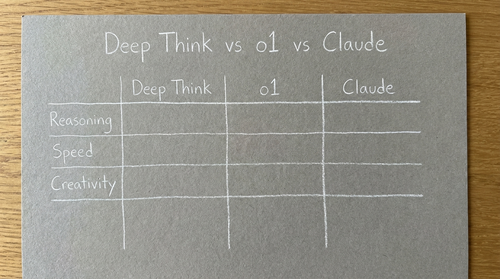 Deep Think vs o1 vs Claude
Deep Think o1 Claude
Reasoning
Speed
Creativity